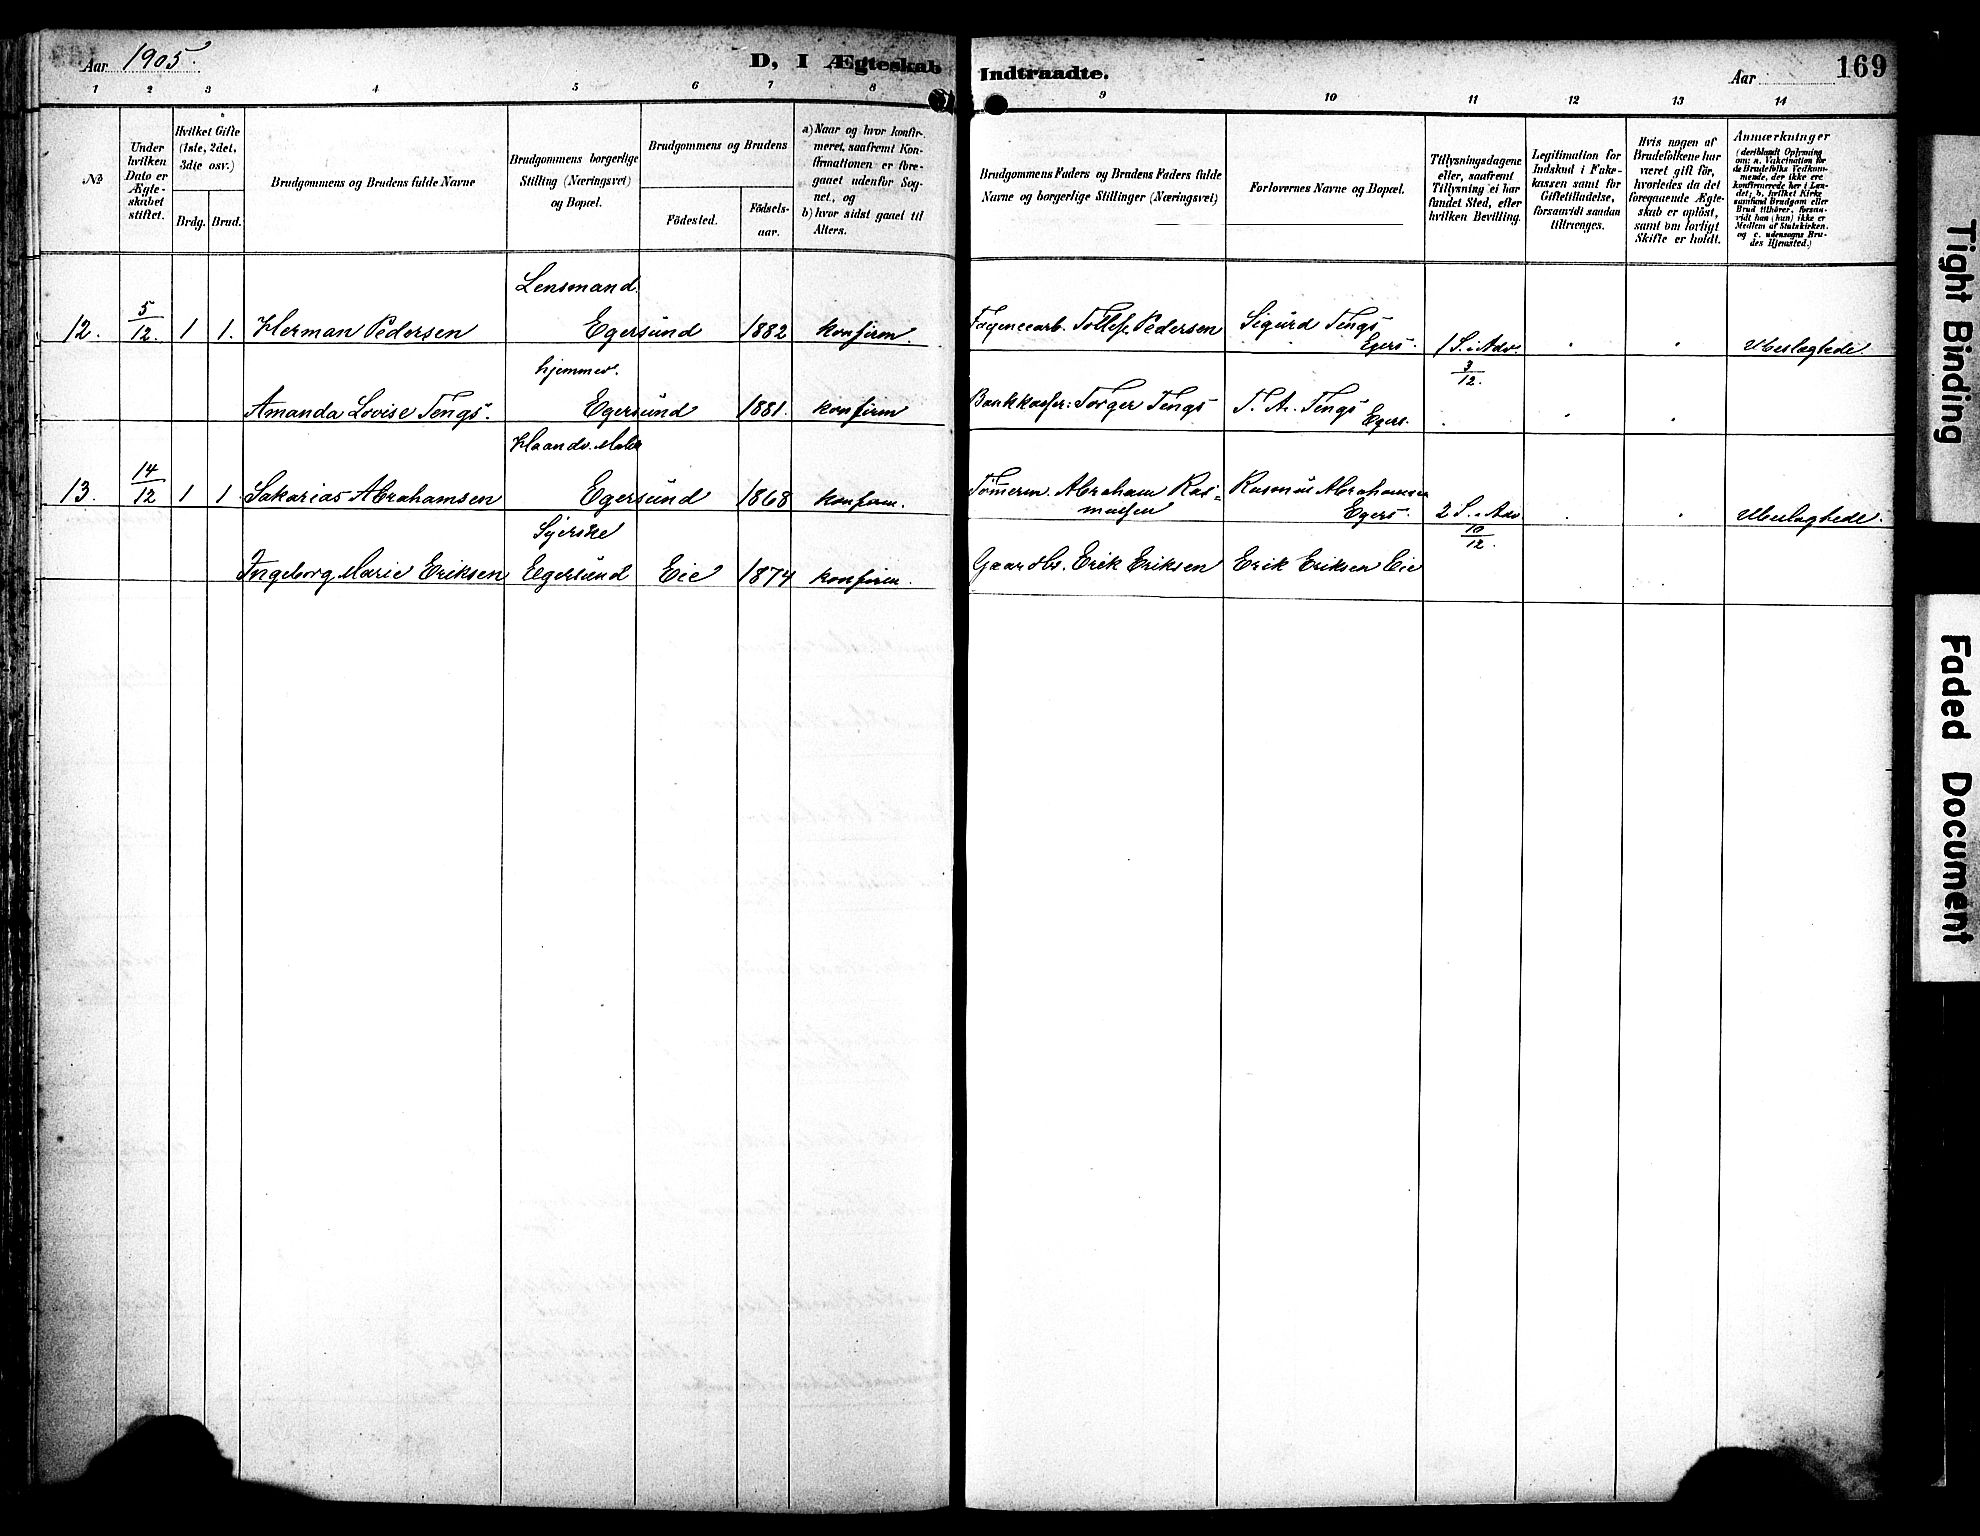 Aar 1905.
D, I Ægteskab Indtraadte.
Aar
169
1 2 3 4 5 6 7 8 9 10 11 12 13 14
№
Under
hvilken
Dato er
Ægte-
skabet
stiftet.
Hvilket Gifte
(1ste, 2det,
3die osv.)
Brdg. Brud.
Brudgommens og Brudens fulde Navne
Brudgommens borgerlige
Stilling (Næringsvei)
og Bopæl.
Brudgommens og Brudens
Födested.
Födsels-
aar.
a) Naar og hvor konfir-
meret, saafremt Kon-
firmationen er fore-
gaaet udenfor Sog-
net, og
b) hvor sidst gaaet til
Alters.
Brudgommens Faders og Brudens Faders fulde
Navne og borgerlige Stillinger (Næringsvei)
Forlovernes Navne og Bopæl.
Tillysningsdagene
eller, saafremt
Tillysning ei har
fundet Sted, efter
hvilken Bevilling.
Legitimation for
Indskud i Enke-
kassen samt for
Giftetilladelse,
forsaavidt saadan
tiltrænges.
Hvis nogen af
Brudefolkene har
været gift för,
hvorledes da det
foregaaende Ægte-
skab er oplöst,
samt om lovligt
Skifte er holdt.
Anmærkninger
(deriblandt Oplysning
om: a. Vakcination for
de Brudefolks Vedkom-
mende, der ikke ere
konfirmerede her i Lan-
det; b. hvilket Kirke
samfund Brudgom eller
Brud tilhörer, forsaa-
vidt han (hun) ikke er
Medlem af Statskirken.
og c. udensogns Bru-
des Hjemsted.)
Lensmand.
12. 5/12. 1 1. Herman Pedersen Egersund 1882 konfirm. Fayencearb. Tollef Pedersen Sigurd Tengs
Egers. 1 S. i Adv. Ubeslægtede.
hjemmev. 3/12.
Amanda Lovise Tengs. Egersund 1881. konfirm Bankkasser: Torger Tengs T. A. Tengs
Egers.
Haandv. Maler
13. 14/12 1 1 Sakarias Abrahamsen Egersund 1868 konfirm. Tømerm. Abraham Ras=
mussen Rasmus Abrahamsen
Egers. 2 S. i Adv. Ubeslægtede.
Syerske 10/12.
Ingeborg Marie Eriksen Egersund Eie 1874 konfirm. Gaardbr. Erik Eriksen Erik Eriksen Eie
Tight Binding
Faded Document